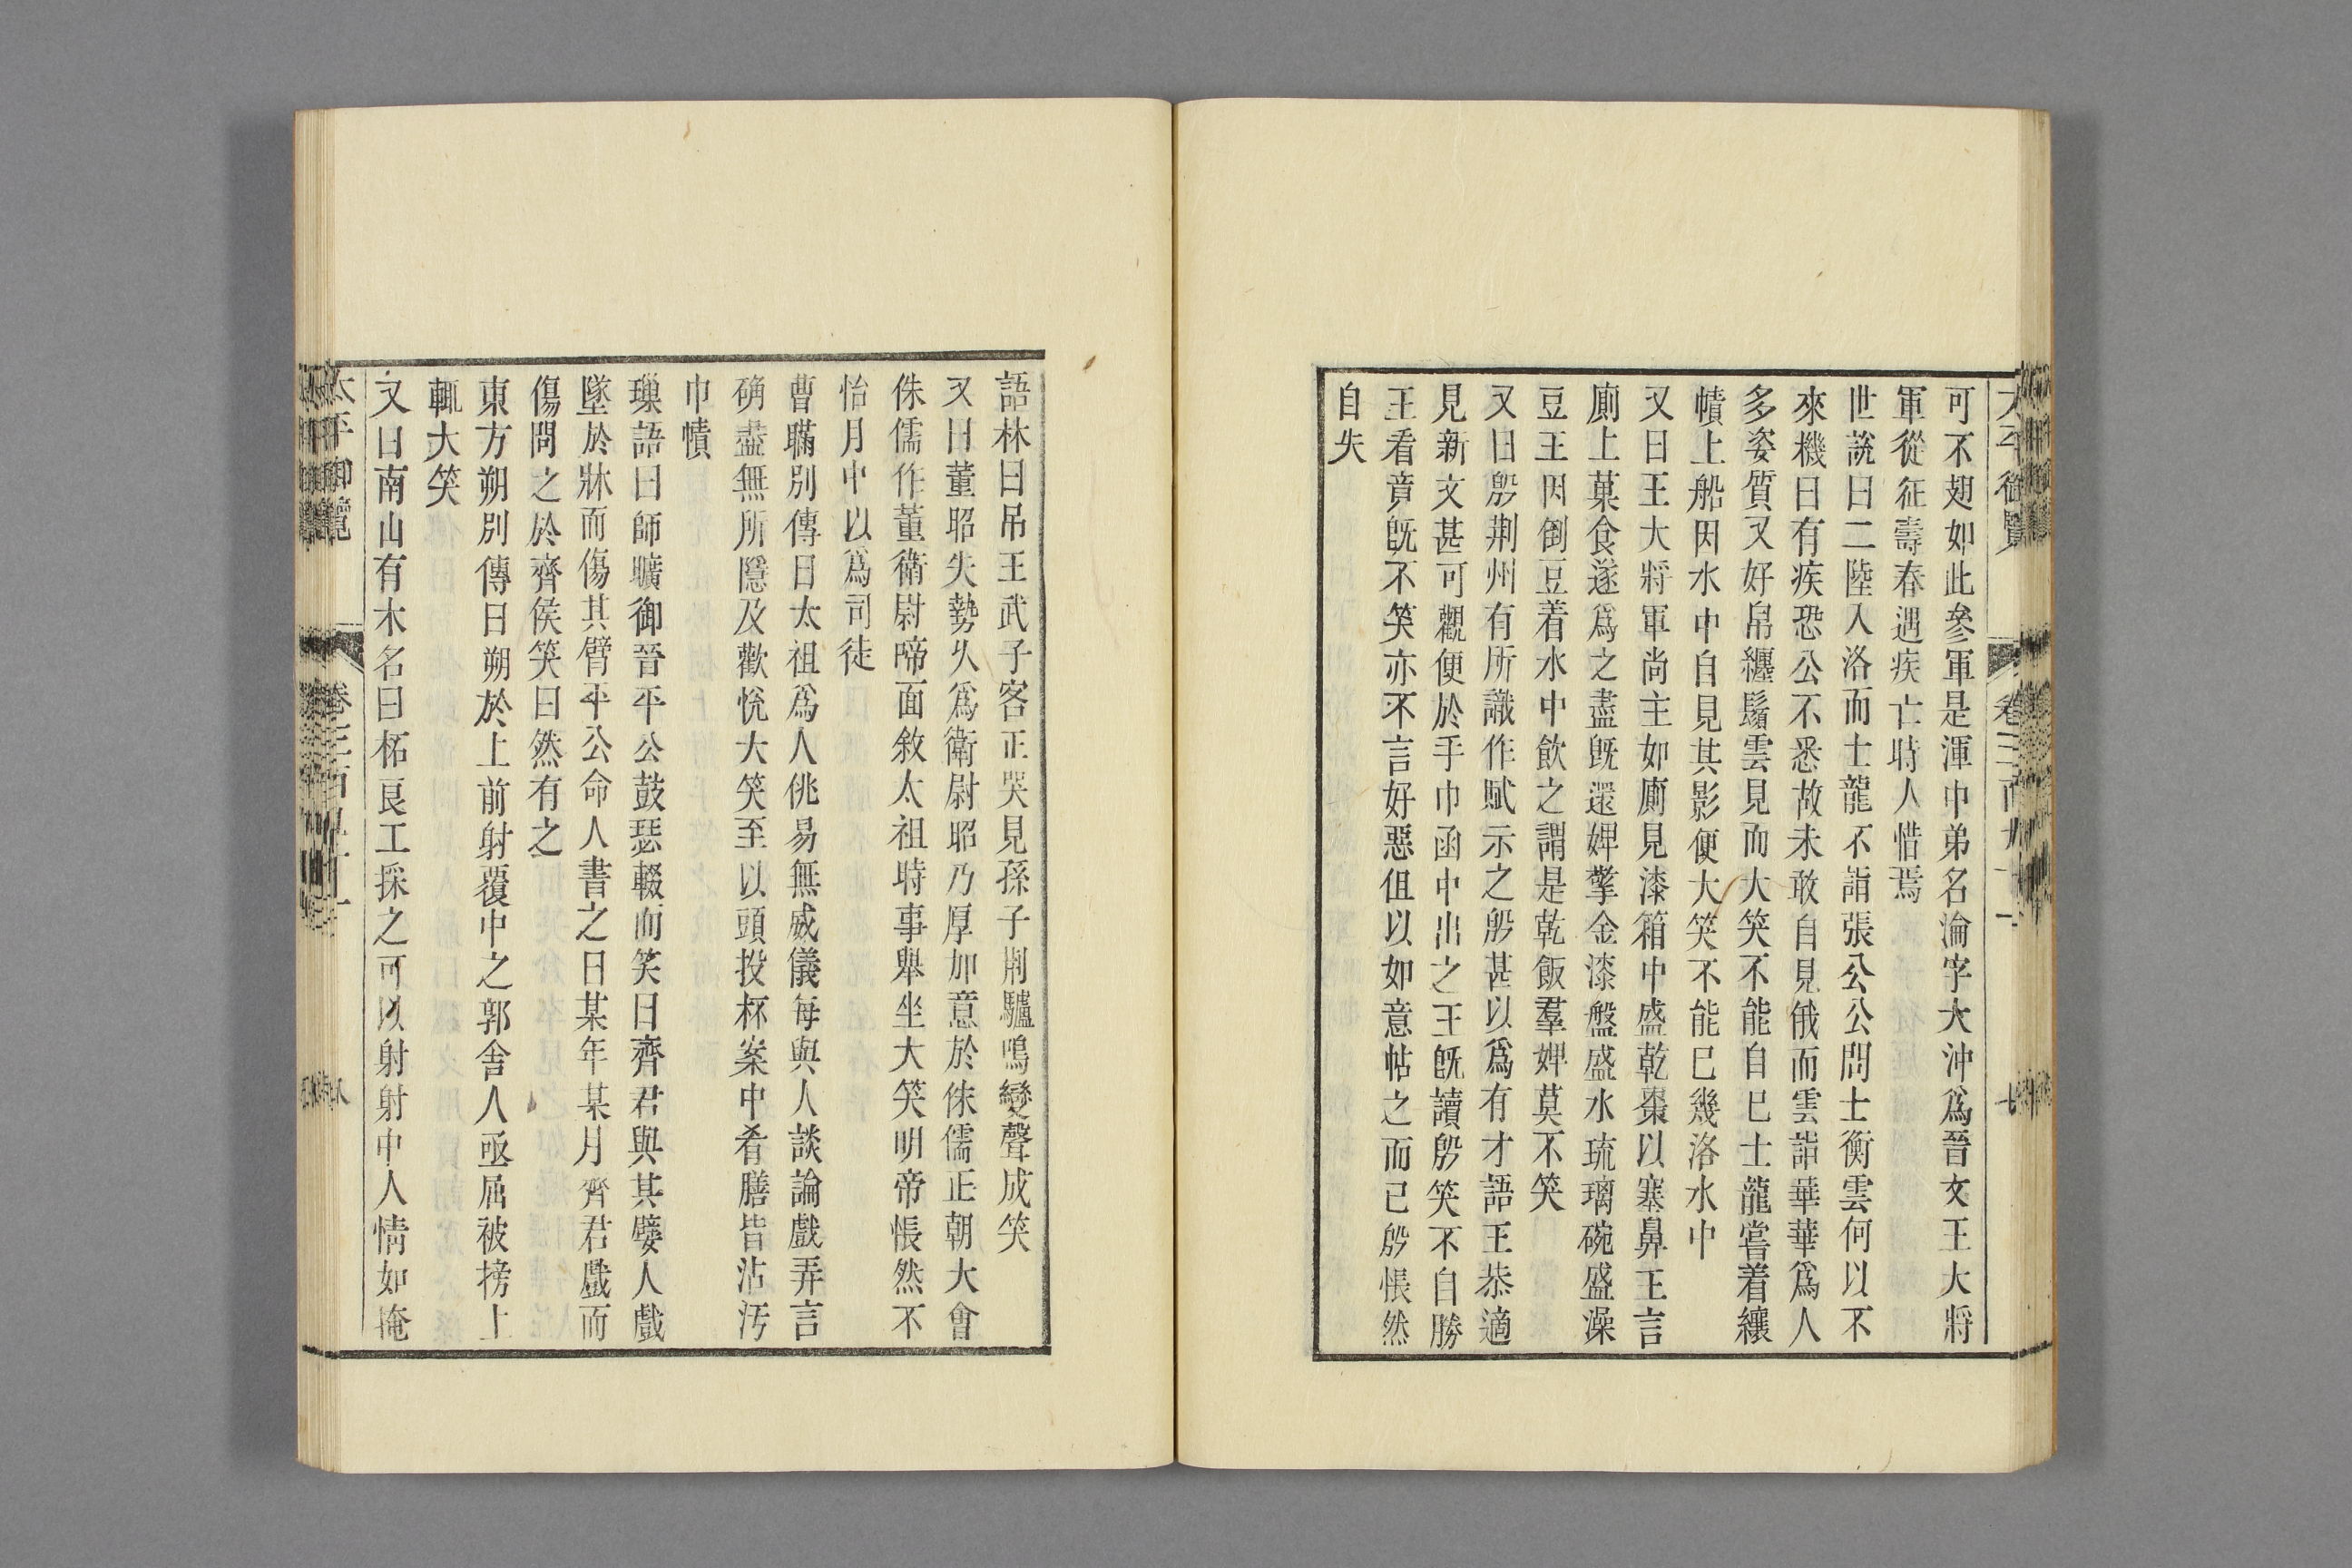 可不翅如此參軍是渾中弟名淪字大沖爲晉文王大將
軍從征壽春遇疾亡時人惜焉
世說曰二陸入洛而士龍不詣張公公問士衡雲何以不
來機曰有疾恐公不悉故未敢自見俄而雲詣華華爲人
多姿質又好帛纏鬚雲見而大笑不能自已士龍嘗着縗
幘上船因水中自見其影便大笑不能已幾洛水中
又曰王大將軍尚主如廁見漆箱中盛乾棗以塞鼻王言
廁上菓食遂爲之盡旣還婢擎金漆盤盛水琉璃碗盛澡
豆王因倒豆着水中飲之謂是乾飯羣婢莫不笑
又曰殷荆州有所識作賦示之殷甚以爲有才語王恭適
見新文甚可觀便於手巾函中出之王旣讀殷笑不自勝
王看竟旣不笑亦不言好惡但以如意帖之而已殷悵然
自失
語林曰吊王武子客正哭見孫子荆驢鳴變聲成笑
又曰董昭失勢久爲衛尉昭乃厚加意於侏儒正朝大會
侏儒作董衛尉啼面敘太祖時事舉坐大笑明帝悵然不
怡月中以爲司徒
曹瞞別傳曰太祖爲人佻易無威儀每與人談論戲弄言
确盡無所隱及歡悅大笑至以頭投杯案中肴膳皆沾汚
巾幘
璅語曰師曠御晉平公鼓瑟輟而笑曰齊君與其嬖人戲
墜於牀而傷其臂平公命人書之曰某年某月齊君戲而
傷問之於齊侯笑曰然有之
東方朔別傳曰朔於上前射覆中之郭舍人亟屈被搒上
輒大笑
又曰南山有木名曰柘良工採之可以射射中人情如掩
太平御覽
卷三百